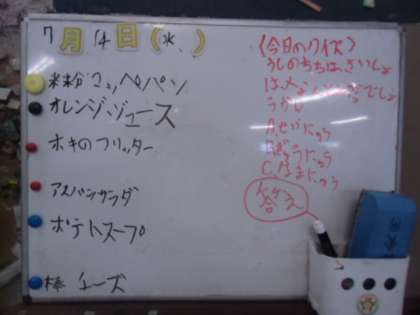 7月14日(水)
米粉コッペパン
オレンジジュース
ホキのフリッター
アスパラサラダ
ポテトスープ
棒チーズ
〈今日のクイズ〉
うしのちちは、さいしょ
は、なんというでしょ
うか。
A、せいにゅう
B、ぎゅうにゅう
C、なまにゅう
答え